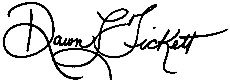 Dawn L Tickett